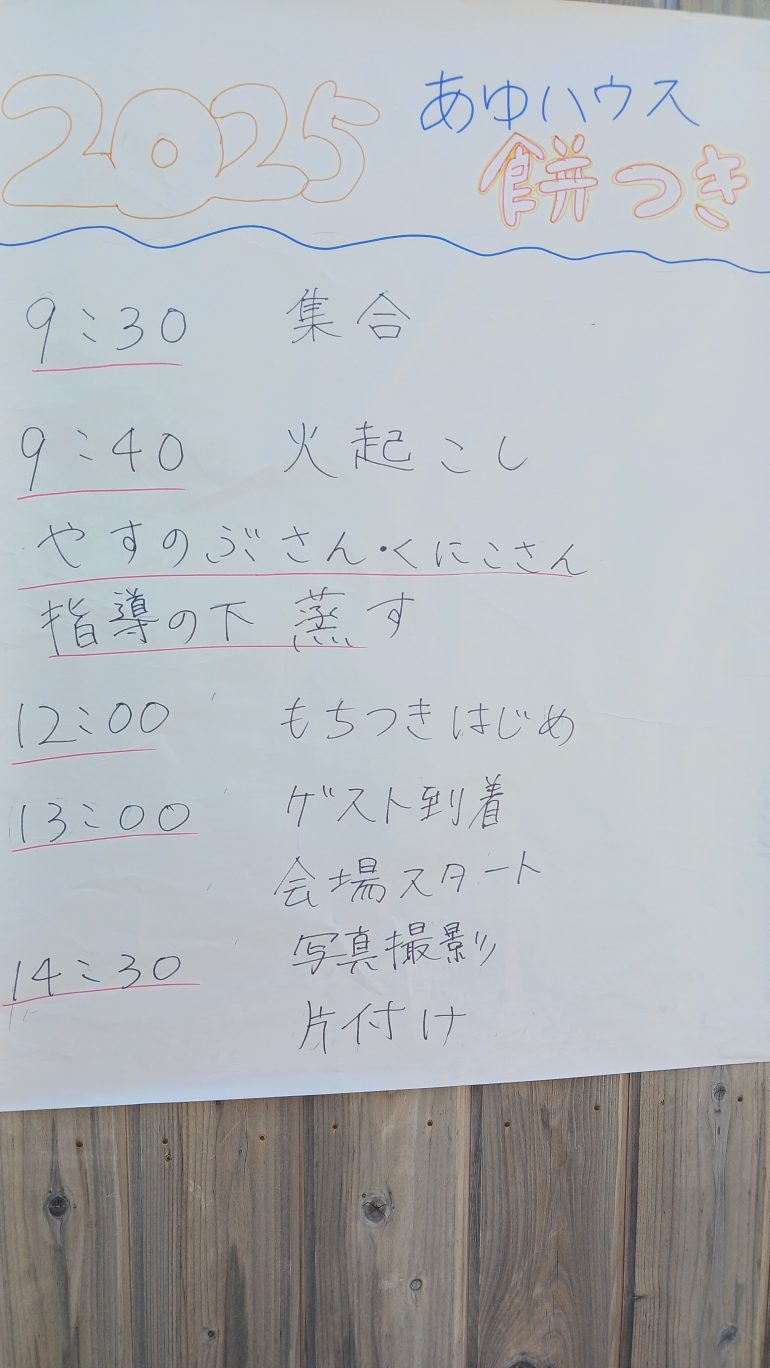 2025 あゆハウス
餅つき
9:30 集合
9:40 火起こし
やすのぶさん・くにこさん
指導の下 蒸す
12:00 もちつきはじめ
13:00 ゲスト到着
会場スタート
14:30 写真撮影
片付け